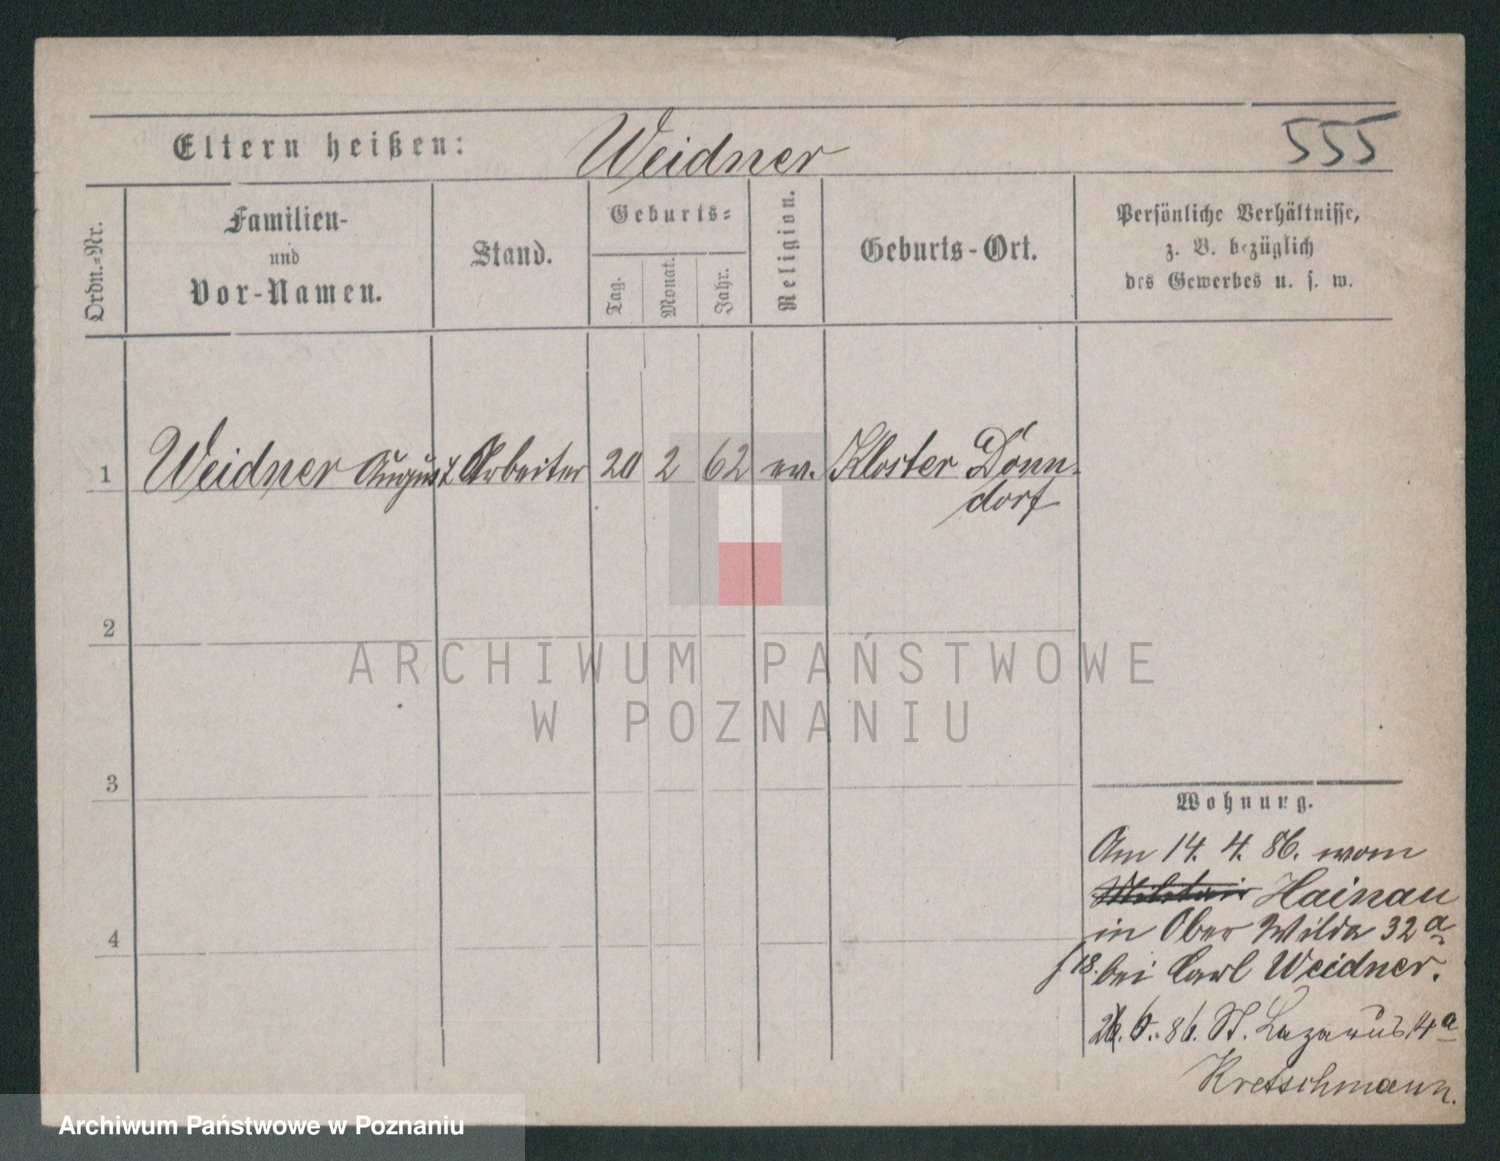 Eltern heißen: Weidner 555
Ordn.-Nr.
Familien-
und
Vor-Namen.
Stand.
Geburts-
Tag.
Monat.
Jahr.
Religion.
Geburts-Ort.
Persönliche Verhältnisse,
z. B. bezüglich
des Gewerbes u. s. w.
1 Weidner August Arbeiter 20 2 62 ev. Kloster Donn-
dorf
2
ARCHIWUM PAŃSTWOWE
W POZNANIU
3
Wohnung.
Am 14. 4. 86. vom
Militair Hainau
4
in Ober Wilda 32a
18. bei Carl Weidner.
6. 86. St. Lazarus 14a
Kretschmann.
Archiwum Państwowe w Poznaniu